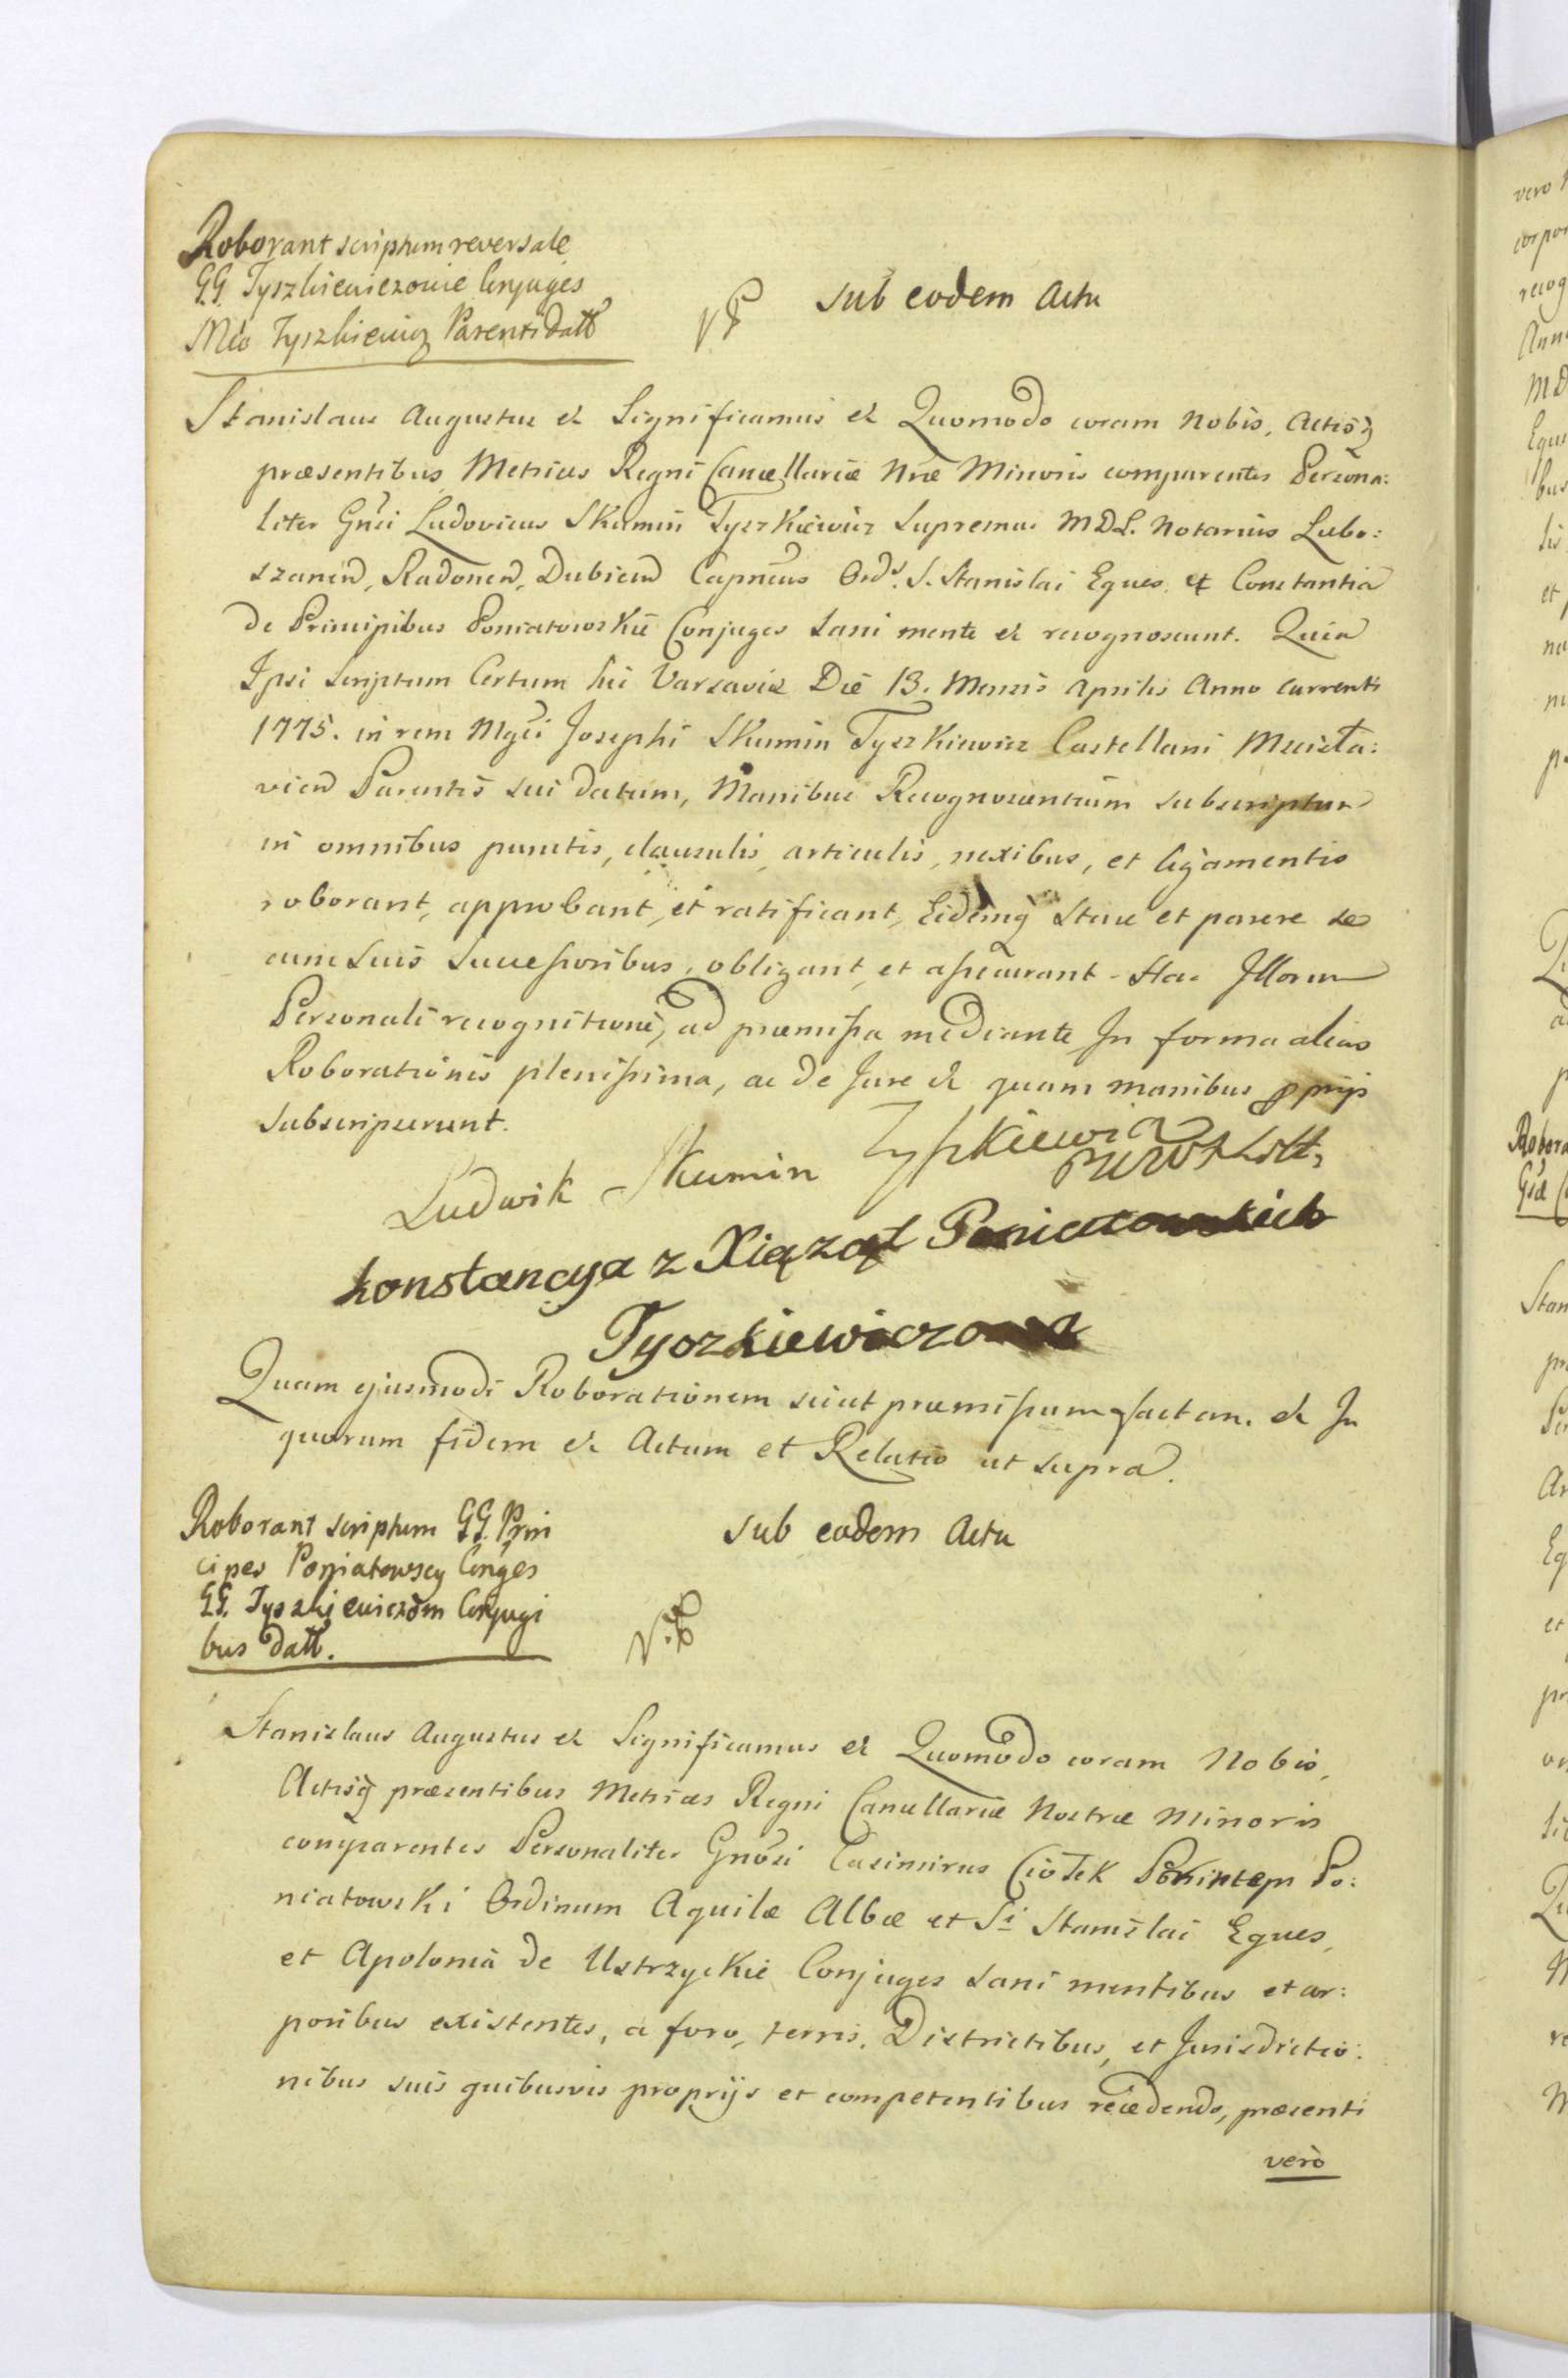 Roborant scriptum reversale
GG. Tyszkiewiczowie Conjuges
Mco Tyszkiewicz Parenti Datt
sub eodem Actu
Stanislaus Augustus et Significamus et Quomodo coram Nobis, Actisq
præsentibus Metrices Regni Cancellariæ Nræ Minoris comparentes Persona:
liter Gnsi Ludovicus Skumin Tyszkiewicz Supremus M.D.L. Notarius Lubo:
szanen, Radonen, Dubicen Capneus Ord. S. Stanislai Eques, et Constantia
de Principibus Poniatowskie Conjuges sani mente et recognoscunt. Quia
Ipsi Scriptum Certum hic Varsaviæ Die 13. Mensis Aprilis Anno currenti
1775. in rem Mgci Josephi Skumin Tyszkiewicz Castellani Mscisła:
vien Parentis sui datum, Manibus Recognoscentium subscriptum
in omnibus punctis, clausulis, articulis, nexibus, et ligamentis
roborant, approbant, et ratificant, Eidemq stare et parere se
cum suis Successoribus, obligant, et assecurant - Hac Illorum
Personali recognitione, ad præmissa mediante In forma alias
Roborationis plenissima, ac de Jure et quam manibus pprijs
subscripserunt.
Ludwik Skumin Tyszkiewicz
PWWXLitt,
konstancya z Xiąząt Poniatowskich
Tyszkiewiczowa
Quam ejusmodi Roborationem sicut præmissum factam. et In
quorum fidem et Actum et Relatio ut supra.
Roborant scriptum GG. Prin
cipes Poniatowscy Conges
GG. Tyszkiewiczom Conjugi
bus Datt.
sub eodem Actu
Stanislaus Augustus et Significamus et Quomodo coram Nobis,
Actisq præsentibus Metrices Regni Cancellariæ Nostræ Minoris
comparentes Personaliter Gnosi Casimirus Ciołek Princeps Po:
niatowski Ordinum Aquilæ Albæ et Si Stanislai Eques,
et Apolonia de Ustrzyckie Conjuges sani mentibus et cor:
poribus existentes, a foro, terris, Districtibus, et Jurisdictio:
nibus suis quibusvis proprijs et competentibus recedendo, præsenti
verò